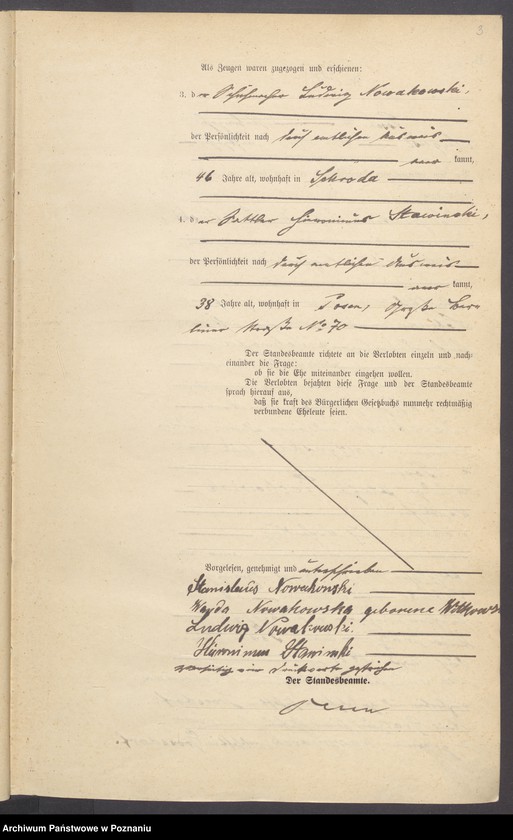 3
Als Zeugen waren zugezogen und erschienen:
3. der Schuhmacher Ludwig Nowakowski,
der Persönlichkeit nach durch amtlichen Ausweis
kannt,
46 Jahre alt, wohnhaft in Schroda
4. der Sattler Hieronimus Stawinski,
der Persönlichkeit nach durch amtlichen Ausweis
kannt,
38 Jahre alt, wohnhaft in Posen, Große Ber=
liner Straße No 70
Der Standesbeamte richtete an die Verlobten einzeln und nach=
einander die Frage:
ob sie die Ehe miteinander eingehen wollen.
Die Verlobten bejahten diese Frage und der Standesbeamte
sprach hierauf aus,
daß sie kraft des Bürgerlichen Gesetzbuchs nunmehr rechtmäßig
verbundene Eheleute seien.
Vorgelesen, genehmigt und unterschrieben
Stanislaus Nowakowski
Wanda Nowakowska geborene
Ludwig Nowakowski.
Hieronimus Stawinski
ein Druckworte gestrichen
Der Standesbeamte.
Archiwum Państwowe w Poznaniu